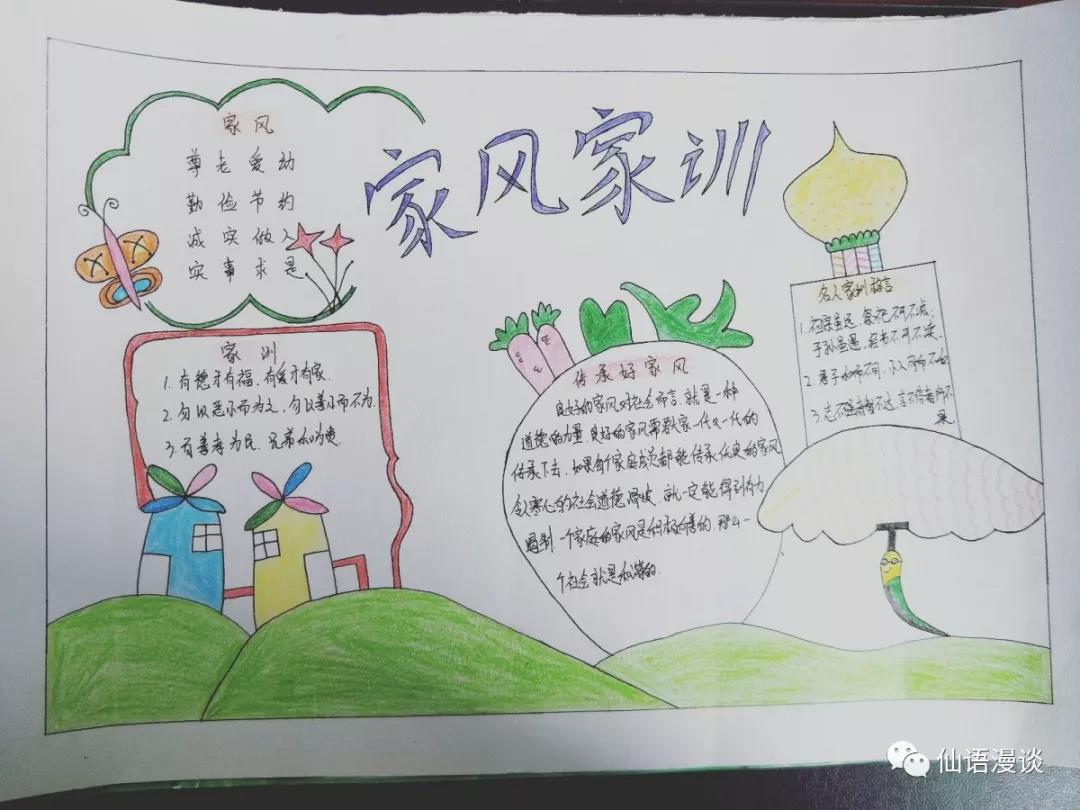 家风家训
家风
尊老爱幼
勤俭节约
诚实做人
实事求是
家训
1. 有德才有福,有爱才有家.
2. 勿以恶小而为之,勿以善小而不为.
3. 百善孝为先,兄弟和为贵.
传承好家风
良好的家风对社会而言,就是一种
道德的力量,良好的家风需要大家一代又一代的
传承下去,如果每个家庭成员都能传承优良的家风
令人寒心的社会道德滑坡,就一定能得到有力
遏制.一个家庭的家风是积极向善的,那么一
个社会就是和谐的.
名人家训格言
1. 祖宗虽远,祭祀不可不诚;
子孙虽愚,经书不可不读.
2. 君子和而不同,小人同而不和
3. 志不强者智不达,言不信者行不
果
仙语漫谈